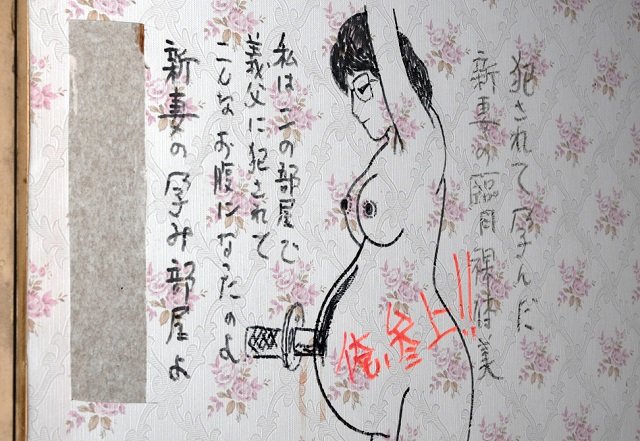 犯されて孕んだ
新妻の臨月裸体美
俺、参上!!
私はこの部屋で
義父に犯されて
こんなお腹になったのよ
新妻の孕み部屋よ